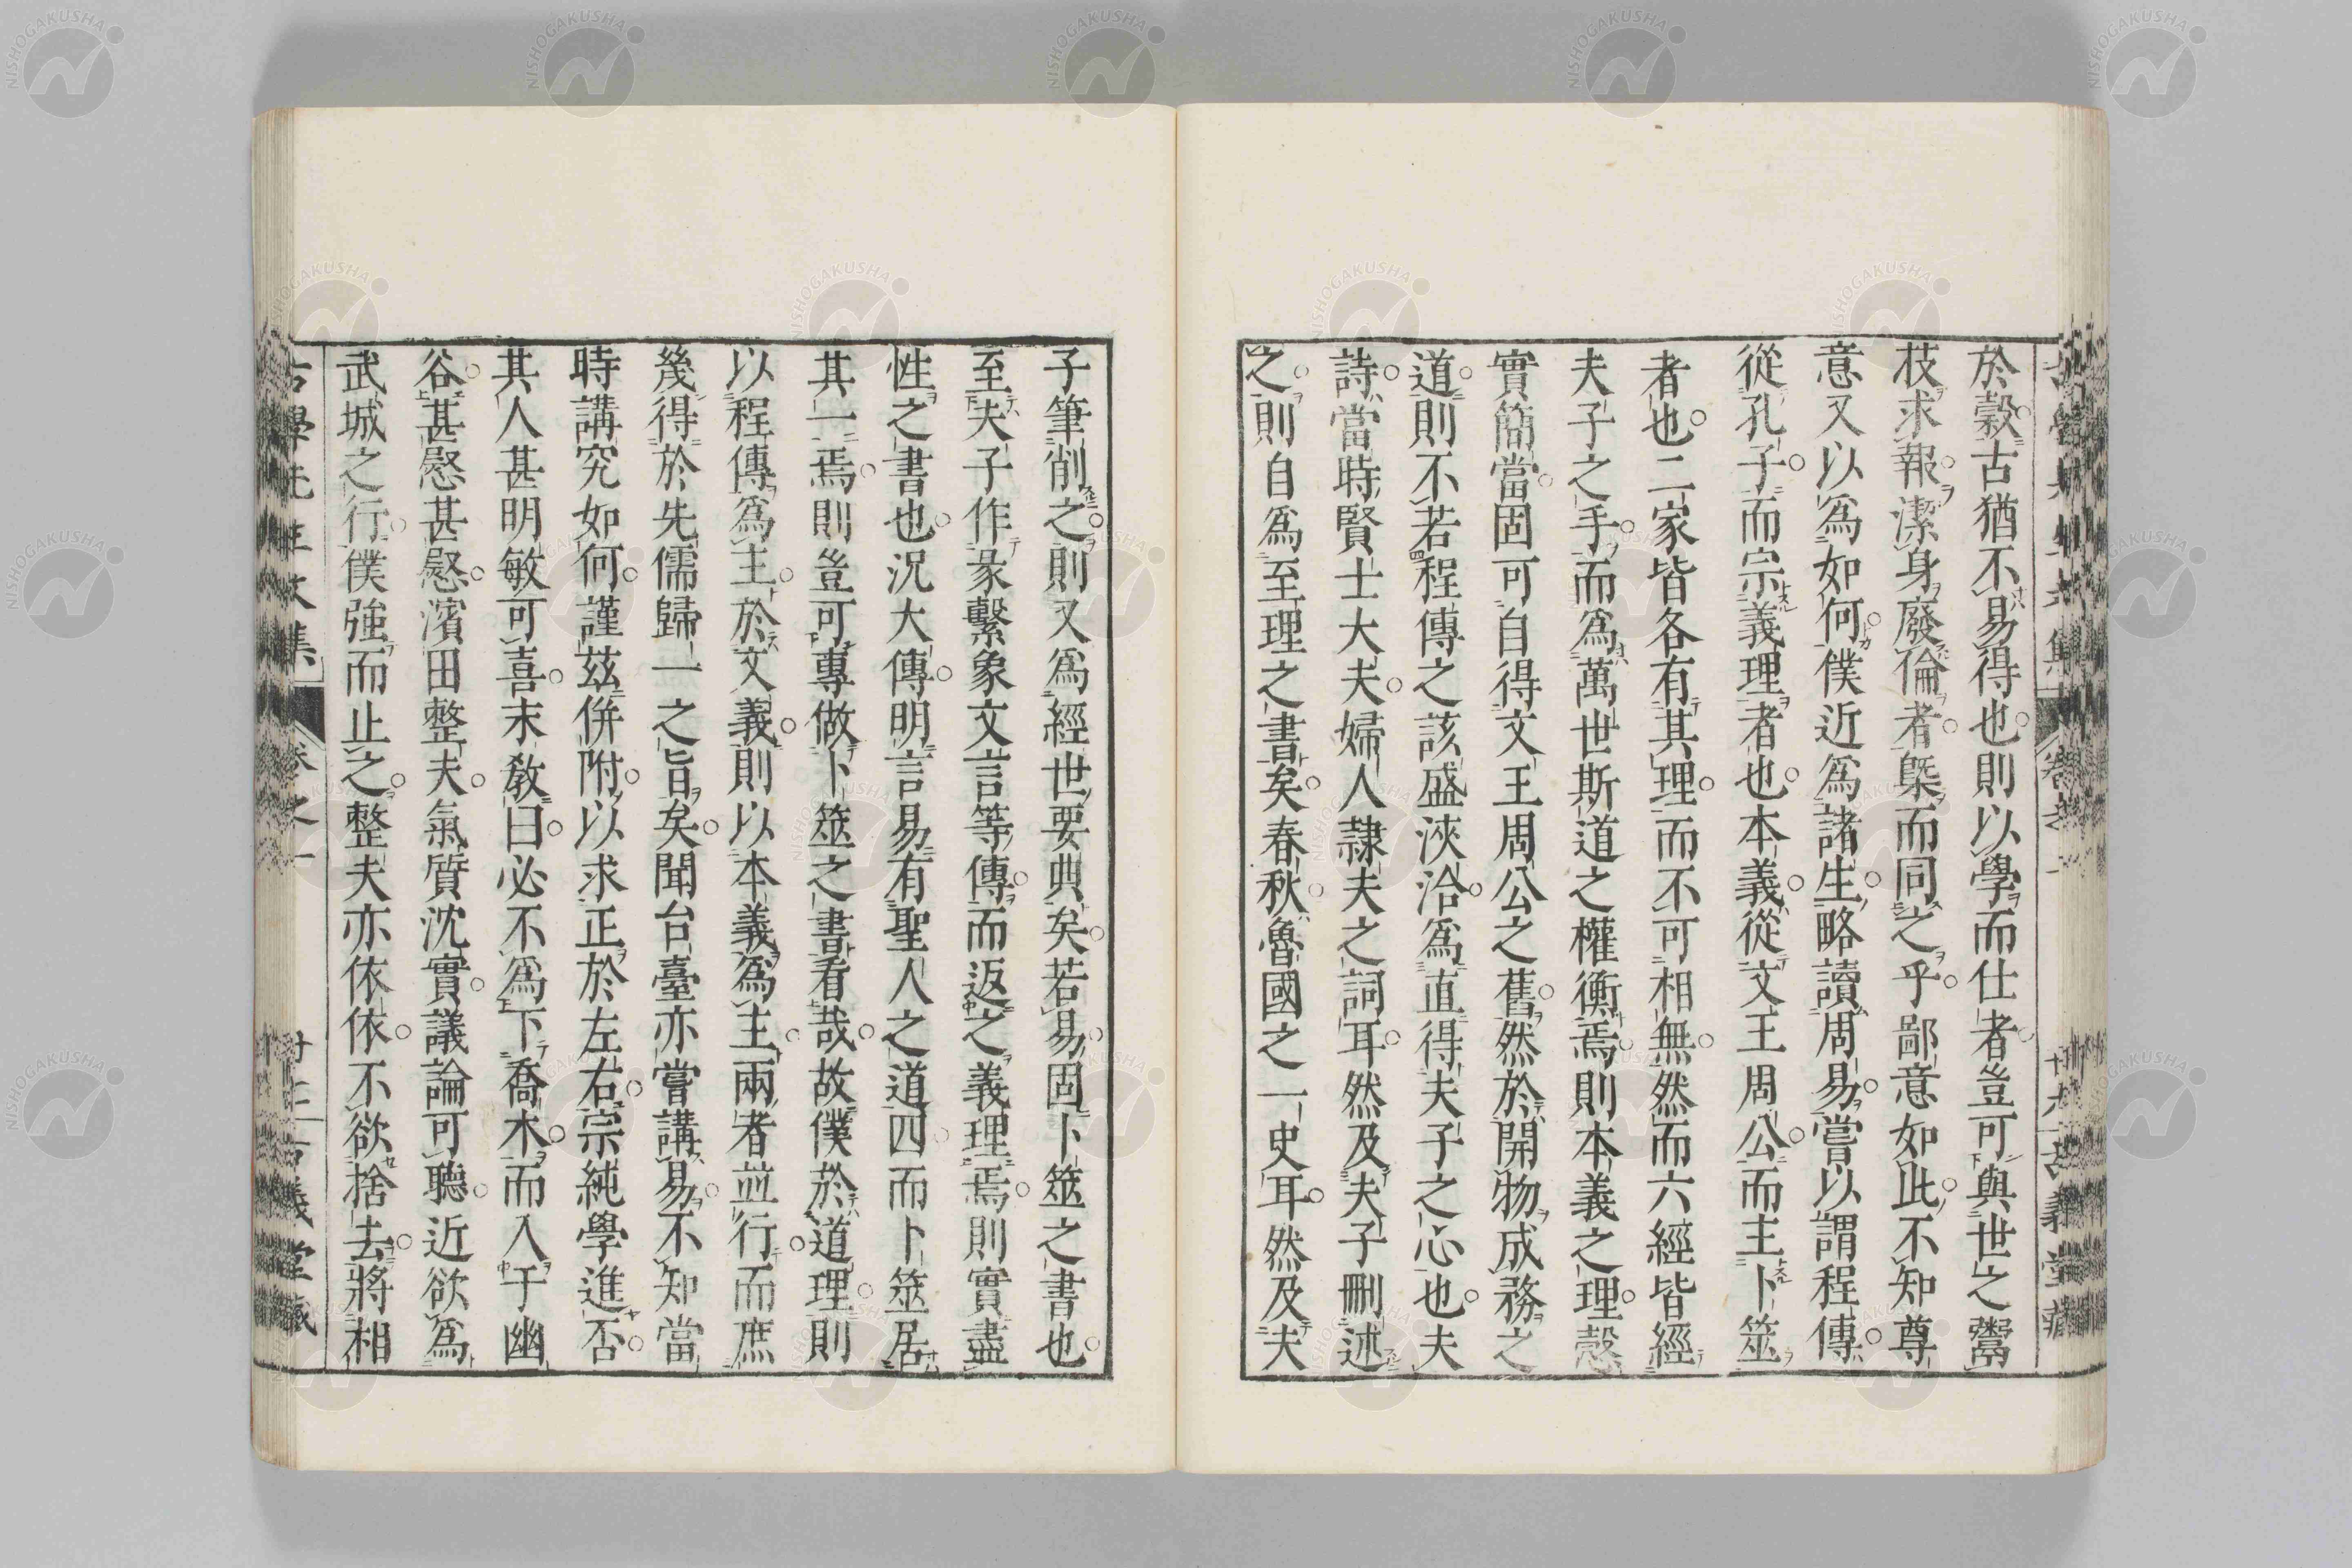 於穀古猶不易得也則以學而仕者豈可與世之鬻
枝求報潔身廢倫者槩而同之乎鄙意如此不知尊
意又以爲如何僕近爲諸生略讀周易嘗以謂程傳
從孔子而宗義理者也本義從文王周公而主卜筮
者也二家皆各有其理而不可相無然而六經皆經
夫子之手而爲萬世斯道之權衡焉則本義之理愨
實簡當固可自得文王周公之舊然於開物成務之
道則不若程傳之該盛浹洽爲直得夫子之心也夫
詩當時賢士大夫婦人隷夫之詞耳然及夫子刪述
之則自爲至理之書矣春秋魯國之一史耳然及夫
子筆削之則又爲經世要典矣若易固卜筮之書也
至夫子作彖繫象文言等傳而返之義理焉則實盡
性之書也況大傳明言易有聖人之道四而卜筮居
其一焉則豈可專做卜筮之書看哉故僕於道理則
以程傳爲主於文義則以本義爲主兩者並行而庶
幾得於先儒歸一之旨矣聞台臺亦嘗講易不知當
時講究如何謹茲併附以求正於左右宗純學進否
其人甚明敏可喜末教曰必不爲下喬木而入于幽
谷甚慰甚慰濱田整夫氣質沈實議論可聽近欲爲
武城之行僕強而止之整夫亦依依不欲捨去將相
古學先生文集 卷之一 古義堂藏